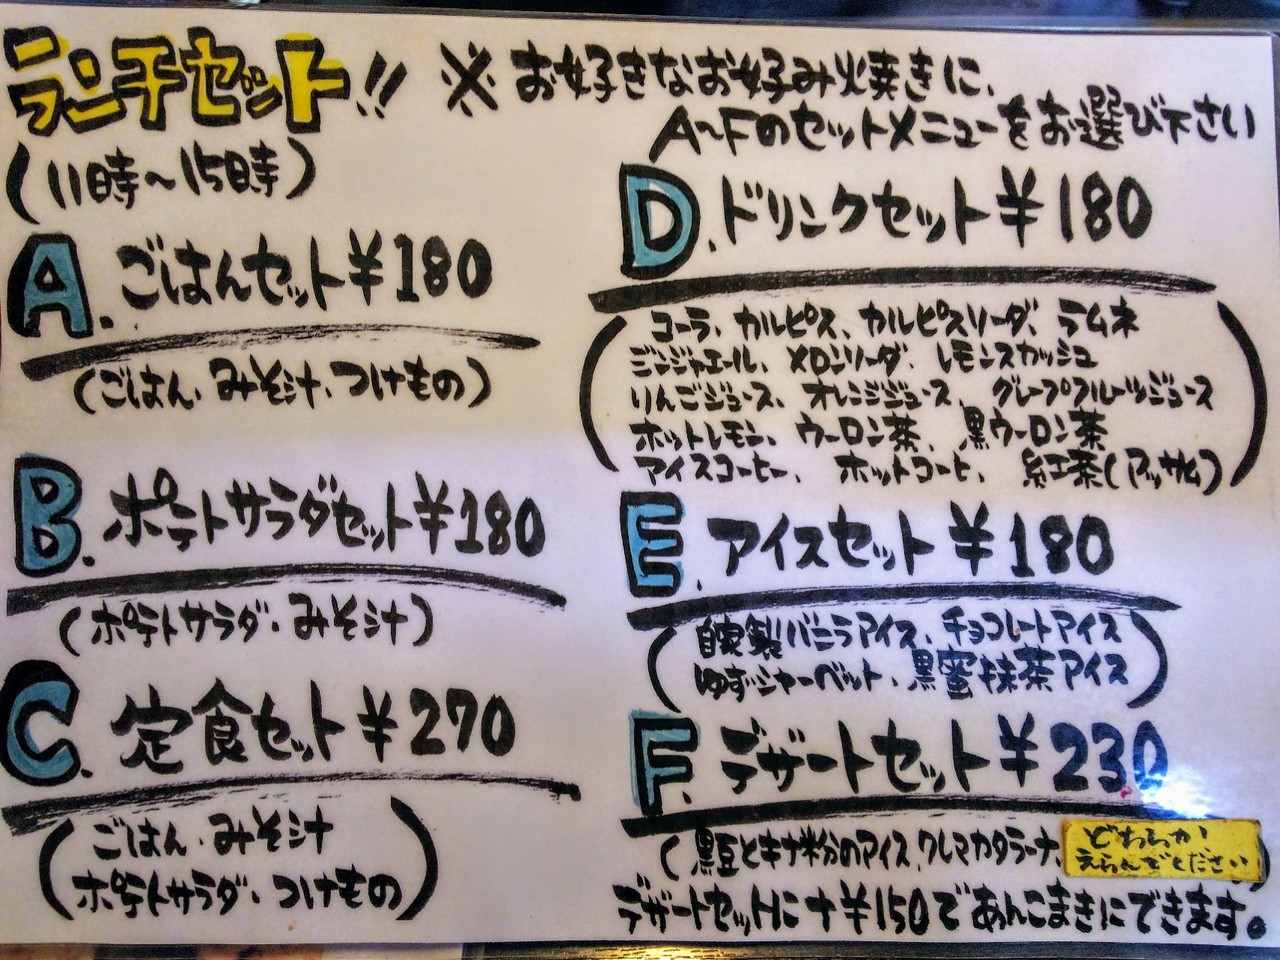 ランチセット!!
(11時～15時)
※お好きなお好み焼きに、
A～Fのセットメニューをお選び下さい
A. ごはんセット¥180
(ごはん、みそ汁、つけもの)
B. ポテトサラダセット¥180
(ポテトサラダ・みそ汁)
C. 定食セット¥270
(ごはん、みそ汁
ポテトサラダ・つけもの)
D. ドリンクセット¥180
(コーラ、カルピス、カルピスソーダ、ラムネ
ジンジャエール、メロンソーダ、レモンスカッシュ
りんごジュース、オレンジジュース、グレープフルーツジュース
ホットレモン、ウーロン茶、黒ウーロン茶
アイスコーヒー、ホットコーヒ、紅茶(アッサム))
E. アイスセット¥180
(自家製バニラアイス、チョコレートアイス
ゆずシャーベット、黒蜜抹茶アイス)
F. デザートセット¥230
(黒豆とキナ粉のアイス、クレマカタラーナ、
どちらか
えらんでください
デザートセットに+¥150であんこまきにできます。